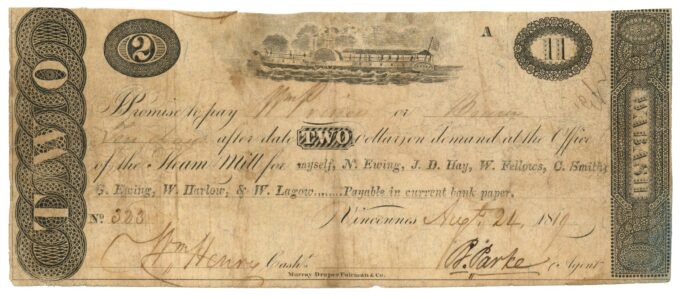 TWO
2
A
11
WABASH
I Promise to pay Wm or
after date TWO Dollars on demand at the Office
of the Steam Mill for myself, N. Ewing, J. D. Hay, W. Fellows, C. Smith,
G. Ewing, W. Harlow, & W. Lagow.......Payable in current bank paper.
No. 323 Vincennes Augt. 24, 1819
Wm Henry Cash'r.
B. Parke Agent
Murray Draper Fairman & Co.